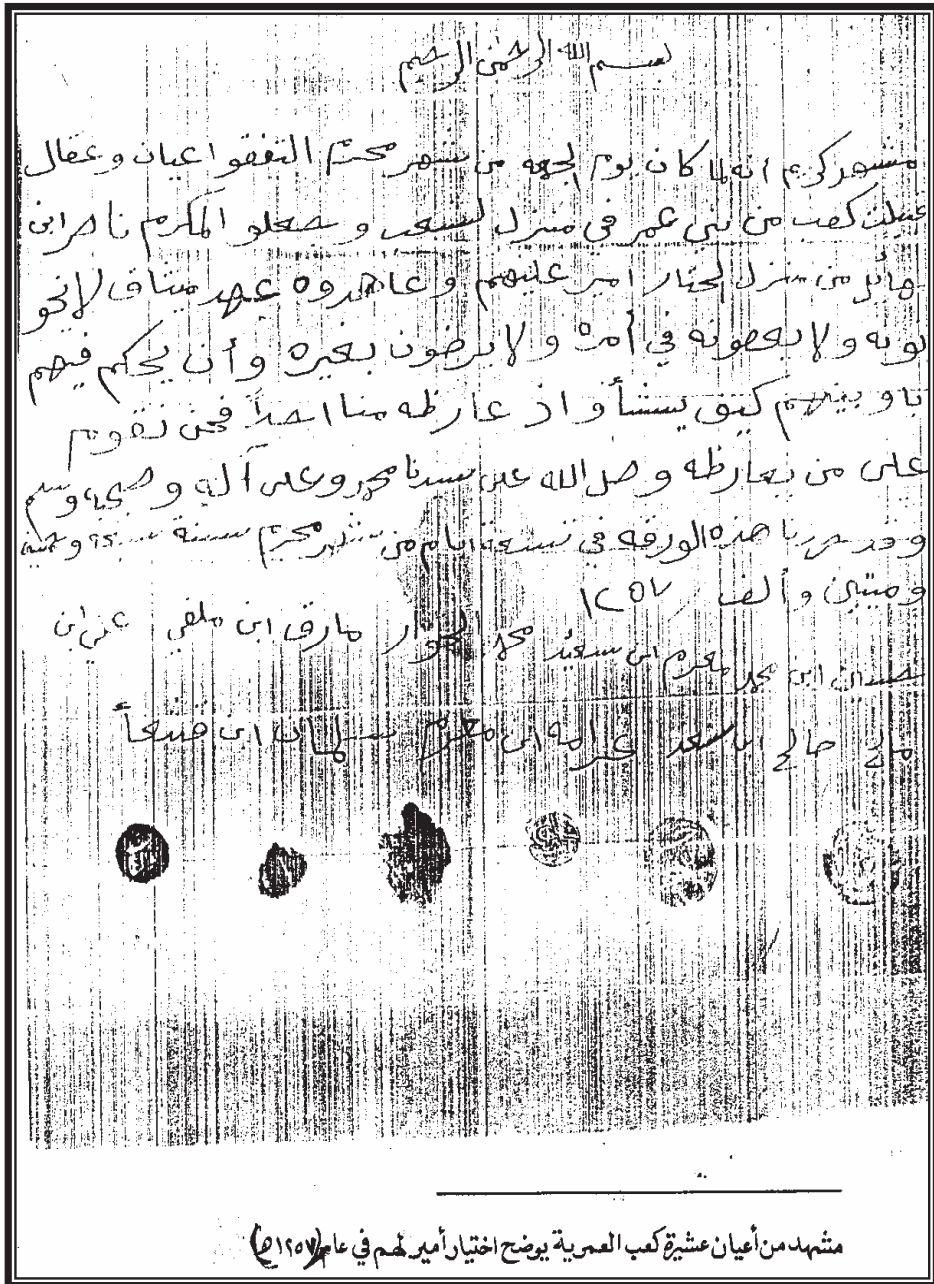 بسم الله الرحمن الرحيم
مشهد كريم انه لما كان يوم الجمعه من شهر محرم التفقو اعيان وعقال
كعب من بني عمر في منزل لشعب و جعلو المكرم ناصر ابن
هائل من منزل المختار امير عليهم وعاهدوه عهد ميثاق لا يخو
نونه ولا يعصونه في أمره ولا يرضون بغيره وأن يحكم فيهم
و بينهم كيف يشأ و اذ عارظه منا احداً فنحن نقوم
على من يعارظه وصل الله على سيدنا محمد وعلى آله وصحبه وسلم
وقد حررنا هذه الورقه في تسعة ايام من شهر محرم سنة
وميتين وألف ١٢٥٧
ابن محمد معرم ابن سعيد محمد مارق ابن ملفي علي ابن
صالح ابن سعد عرامه ابن معرم سلمان ابن
مشهد من أعيان عشيرة كعب العمرية يوضح اختيار أمير لهم في عام (١٢٥٧هـ)